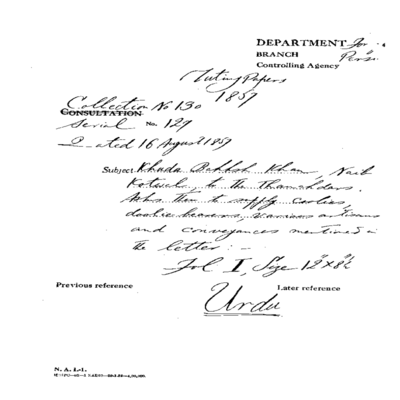 DEPARTMENT For
BRANCH Persi
Controlling Agency
Mutiny Papers
1857
Collection No 130
CONSULTATION
Serial No. 129
Dated 16 August 1857
Subject Khuda Bakhsh Khan, Naib
Kotwal, to the Thanehdars.
Asks them to supply coolies,
doolie bearers, various artisans
and conveyances mentioned in
the letter: —
Fol I, Size
Previous reference
Later reference
Urdu
N. A. I.-1.